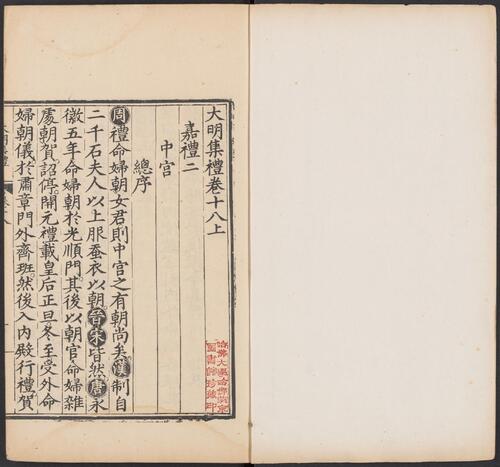 大明集禮卷十八上
嘉禮二
中宮
總序
周禮命婦朝女君則中宮之有朝尚矣漢制自
二千石夫人以上服蚕衣以朝晉宋皆然唐永
徽五年命婦朝於光順門其後以朝官命婦雜
處朝賀詔停開元禮載皇后正旦冬至受外命
婦朝儀於肅章門外齊班然後入内殿行禮賀